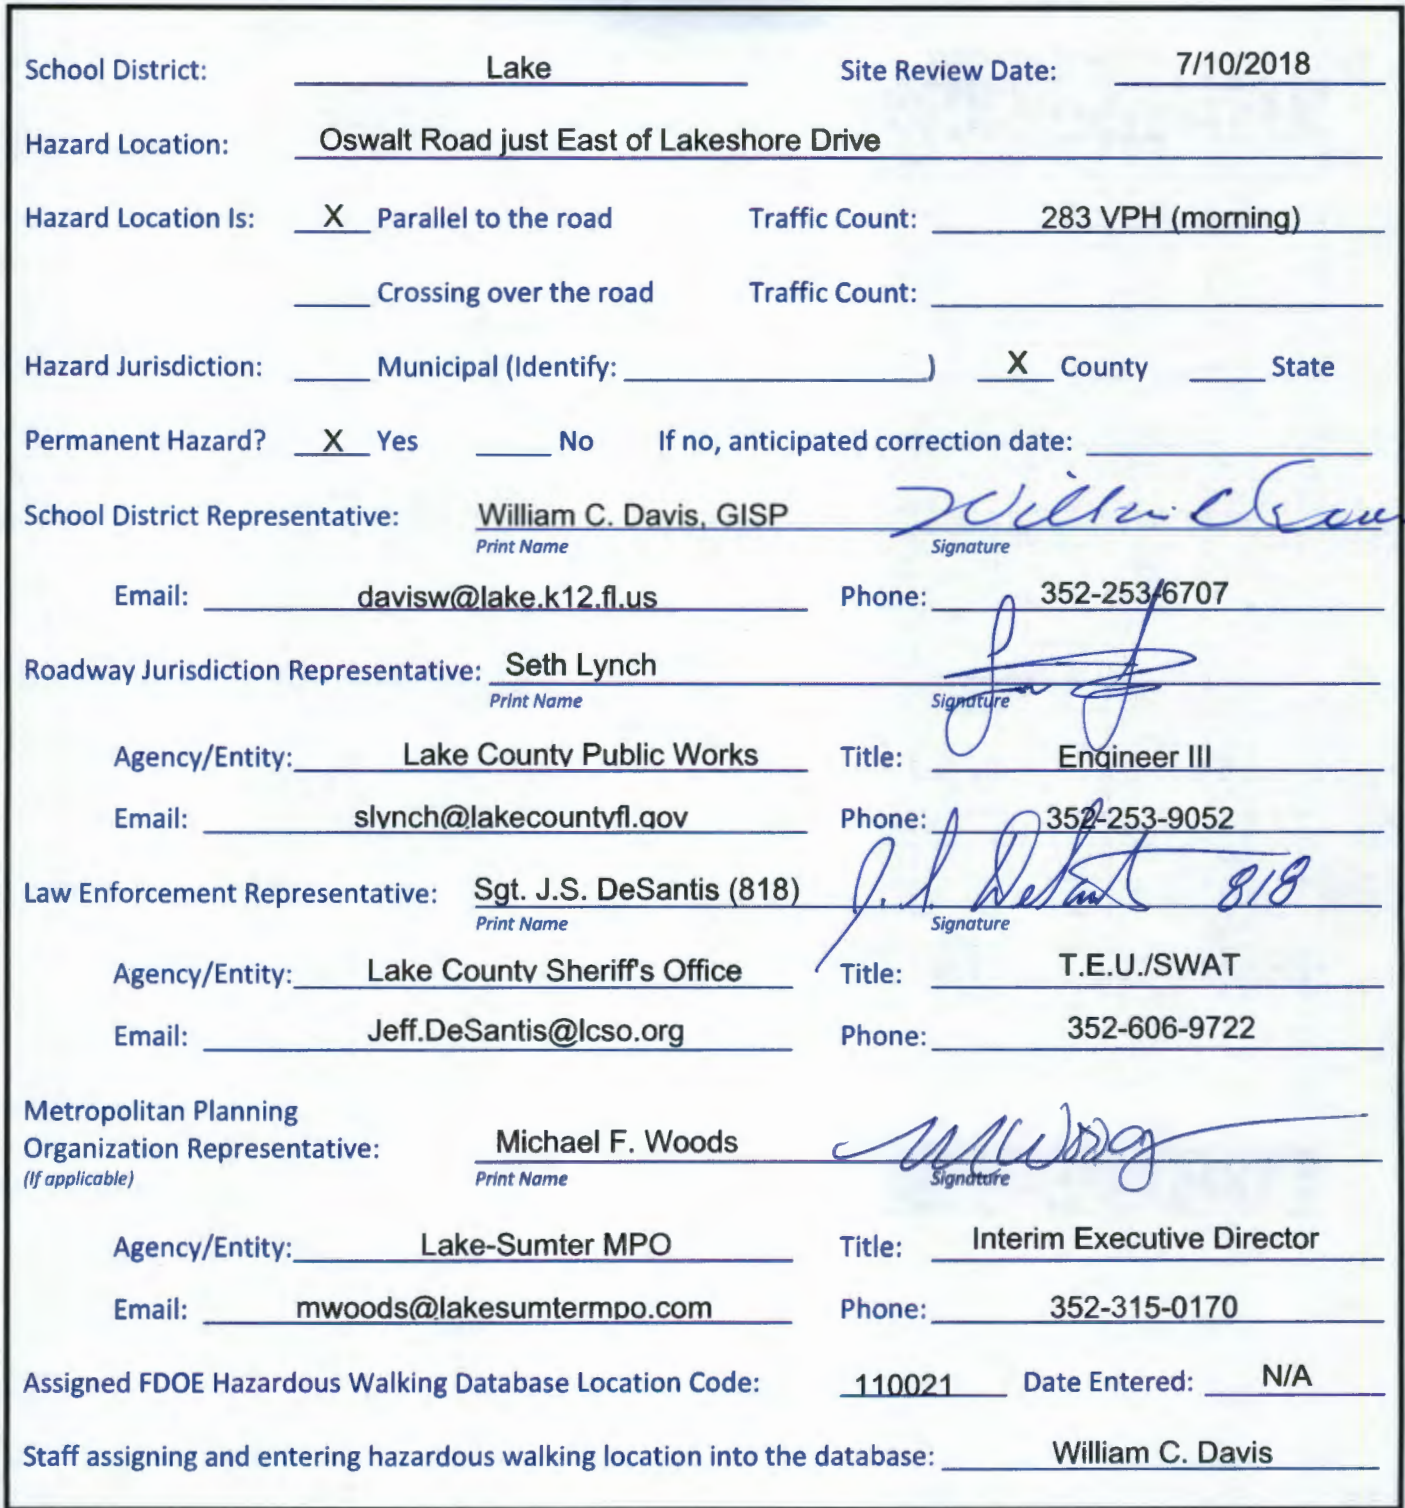 School District: Lake Site Review Date: 7/10/2018
Hazard Location: Oswalt Road just East of Lakeshore Drive
Hazard Location Is: X Parallel to the road Traffic Count: 283 VPH (morning)
Crossing over the road Traffic Count:
Hazard Jurisdiction: Municipal (Identify: ) X County State
Permanent Hazard? X Yes No If no, anticipated correction date:
School District Representative: William C. Davis, GISP
Print Name Signature
Email: davisw@lake.k12.fl.us Phone: 352-253-6707
Roadway Jurisdiction Representative: Seth Lynch
Print Name Signature
Agency/Entity: Lake County Public Works Title: Engineer III
Email: slynch@lakecountyfl.gov Phone: 352-253-9052
Law Enforcement Representative: Sgt. J.S. DeSantis (818) J. S. DeSantis 818
Print Name Signature
Agency/Entity: Lake County Sheriff's Office Title: T.E.U./SWAT
Email: Jeff.DeSantis@lcso.org Phone: 352-606-9722
Metropolitan Planning
Organization Representative: Michael F. Woods MWoods
(If applicable) Print Name Signature
Agency/Entity: Lake-Sumter MPO Title: Interim Executive Director
Email: mwoods@lakesumtermpo.com Phone: 352-315-0170
Assigned FDOE Hazardous Walking Database Location Code: 110021 Date Entered: N/A
Staff assigning and entering hazardous walking location into the database: William C. Davis